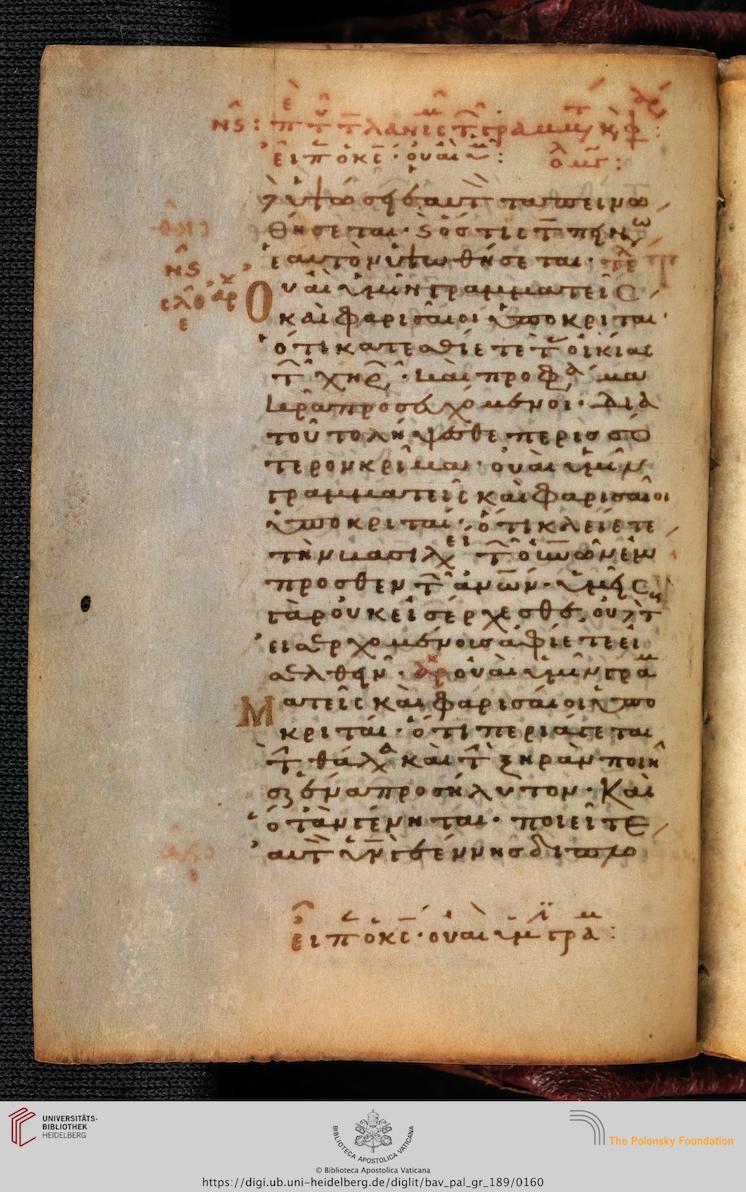 ὑψώσει ἑαυτ ταπεινω
θήσεται· ὅστις
ἑαυτὸν ὑψωθήσεται·
Οὐαὶ ὑμῖν γραμματεῖς
καὶ φαρισαῖοι ὑποκριταί·
ὅτι κατεσθίετε τ οἰκίας
τ χηρ · καὶ προφ μα
κρὰ προσευχόμενοι· διὰ
τοῦτο λήψεσθε περισσό
τερον κρίμα· οὐαὶ ὑμῖν
γραμματεῖς καὶ φαρισαῖοι
ὑποκριταί· ὅτι κλείετε
τὴν βασιλεί τ οὐνῶν ἔμ
προσθεν τ ἀνων· ὑμεῖς
γὰρ οὐκ εἰσέρχεσθε, οὐδὲ τ
εἰσερχομένους ἀφίετε εἰ
σελθεῖν· οὐαὶ ὑμῖν γραμ
ματεῖς καὶ φαρισαῖοι ὑπο
κριταί· ὅτι περιάγετε
τ θάλ καὶ τ ξηρὰν ποιῆ
σαι ἕνα προσήλυτον· καὶ
ὅταν γένηται· ποιεῖτε
αυτ υἱν γεέννης διπλο
εἰπ ὁ κς· οὐαὶ ὑμ γρα:
UNIVERSITÄTS-
BIBLIOTHEK
HEIDELBERG
BIBLIOTECA APOSTOLICA VATICANA
© Biblioteca Apostolica Vaticana
The Polonsky Foundation
https://digi.ub.uni-heidelberg.de/diglit/bav_pal_gr_189/0160